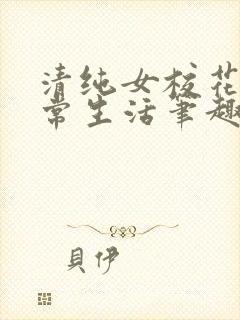 清纯女校花
常生活筆趣
貝伊